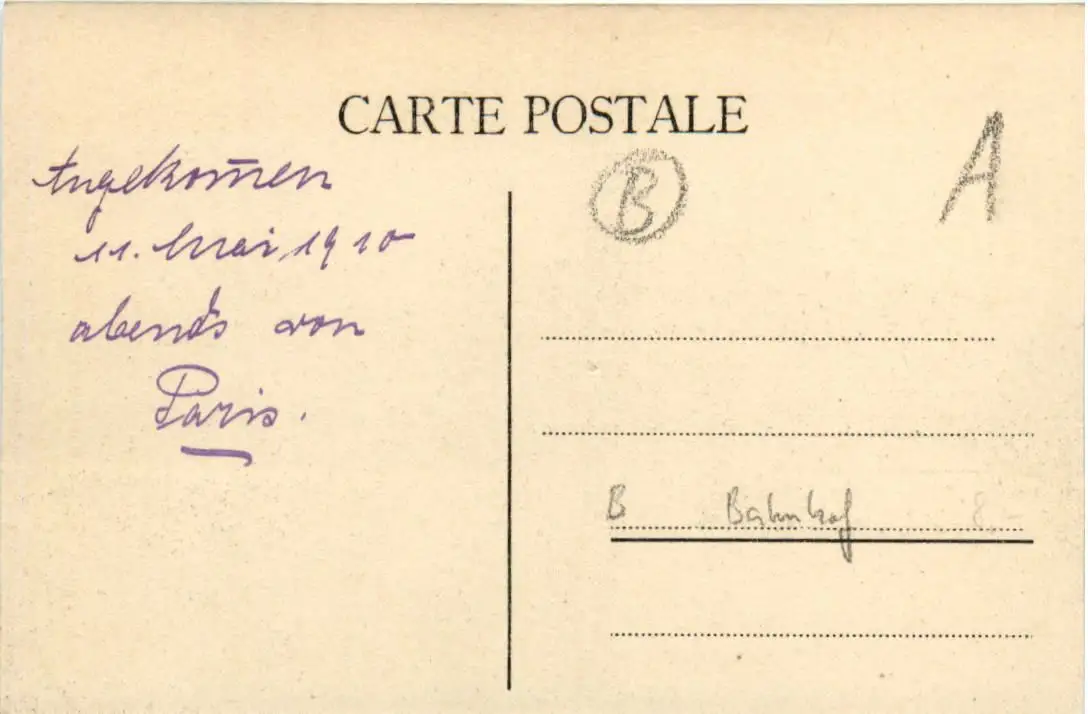 CARTE POSTALE
Angekom̄en
11. Mai 1910
abends von
Paris.
B
A
B Bahnhof 8.-